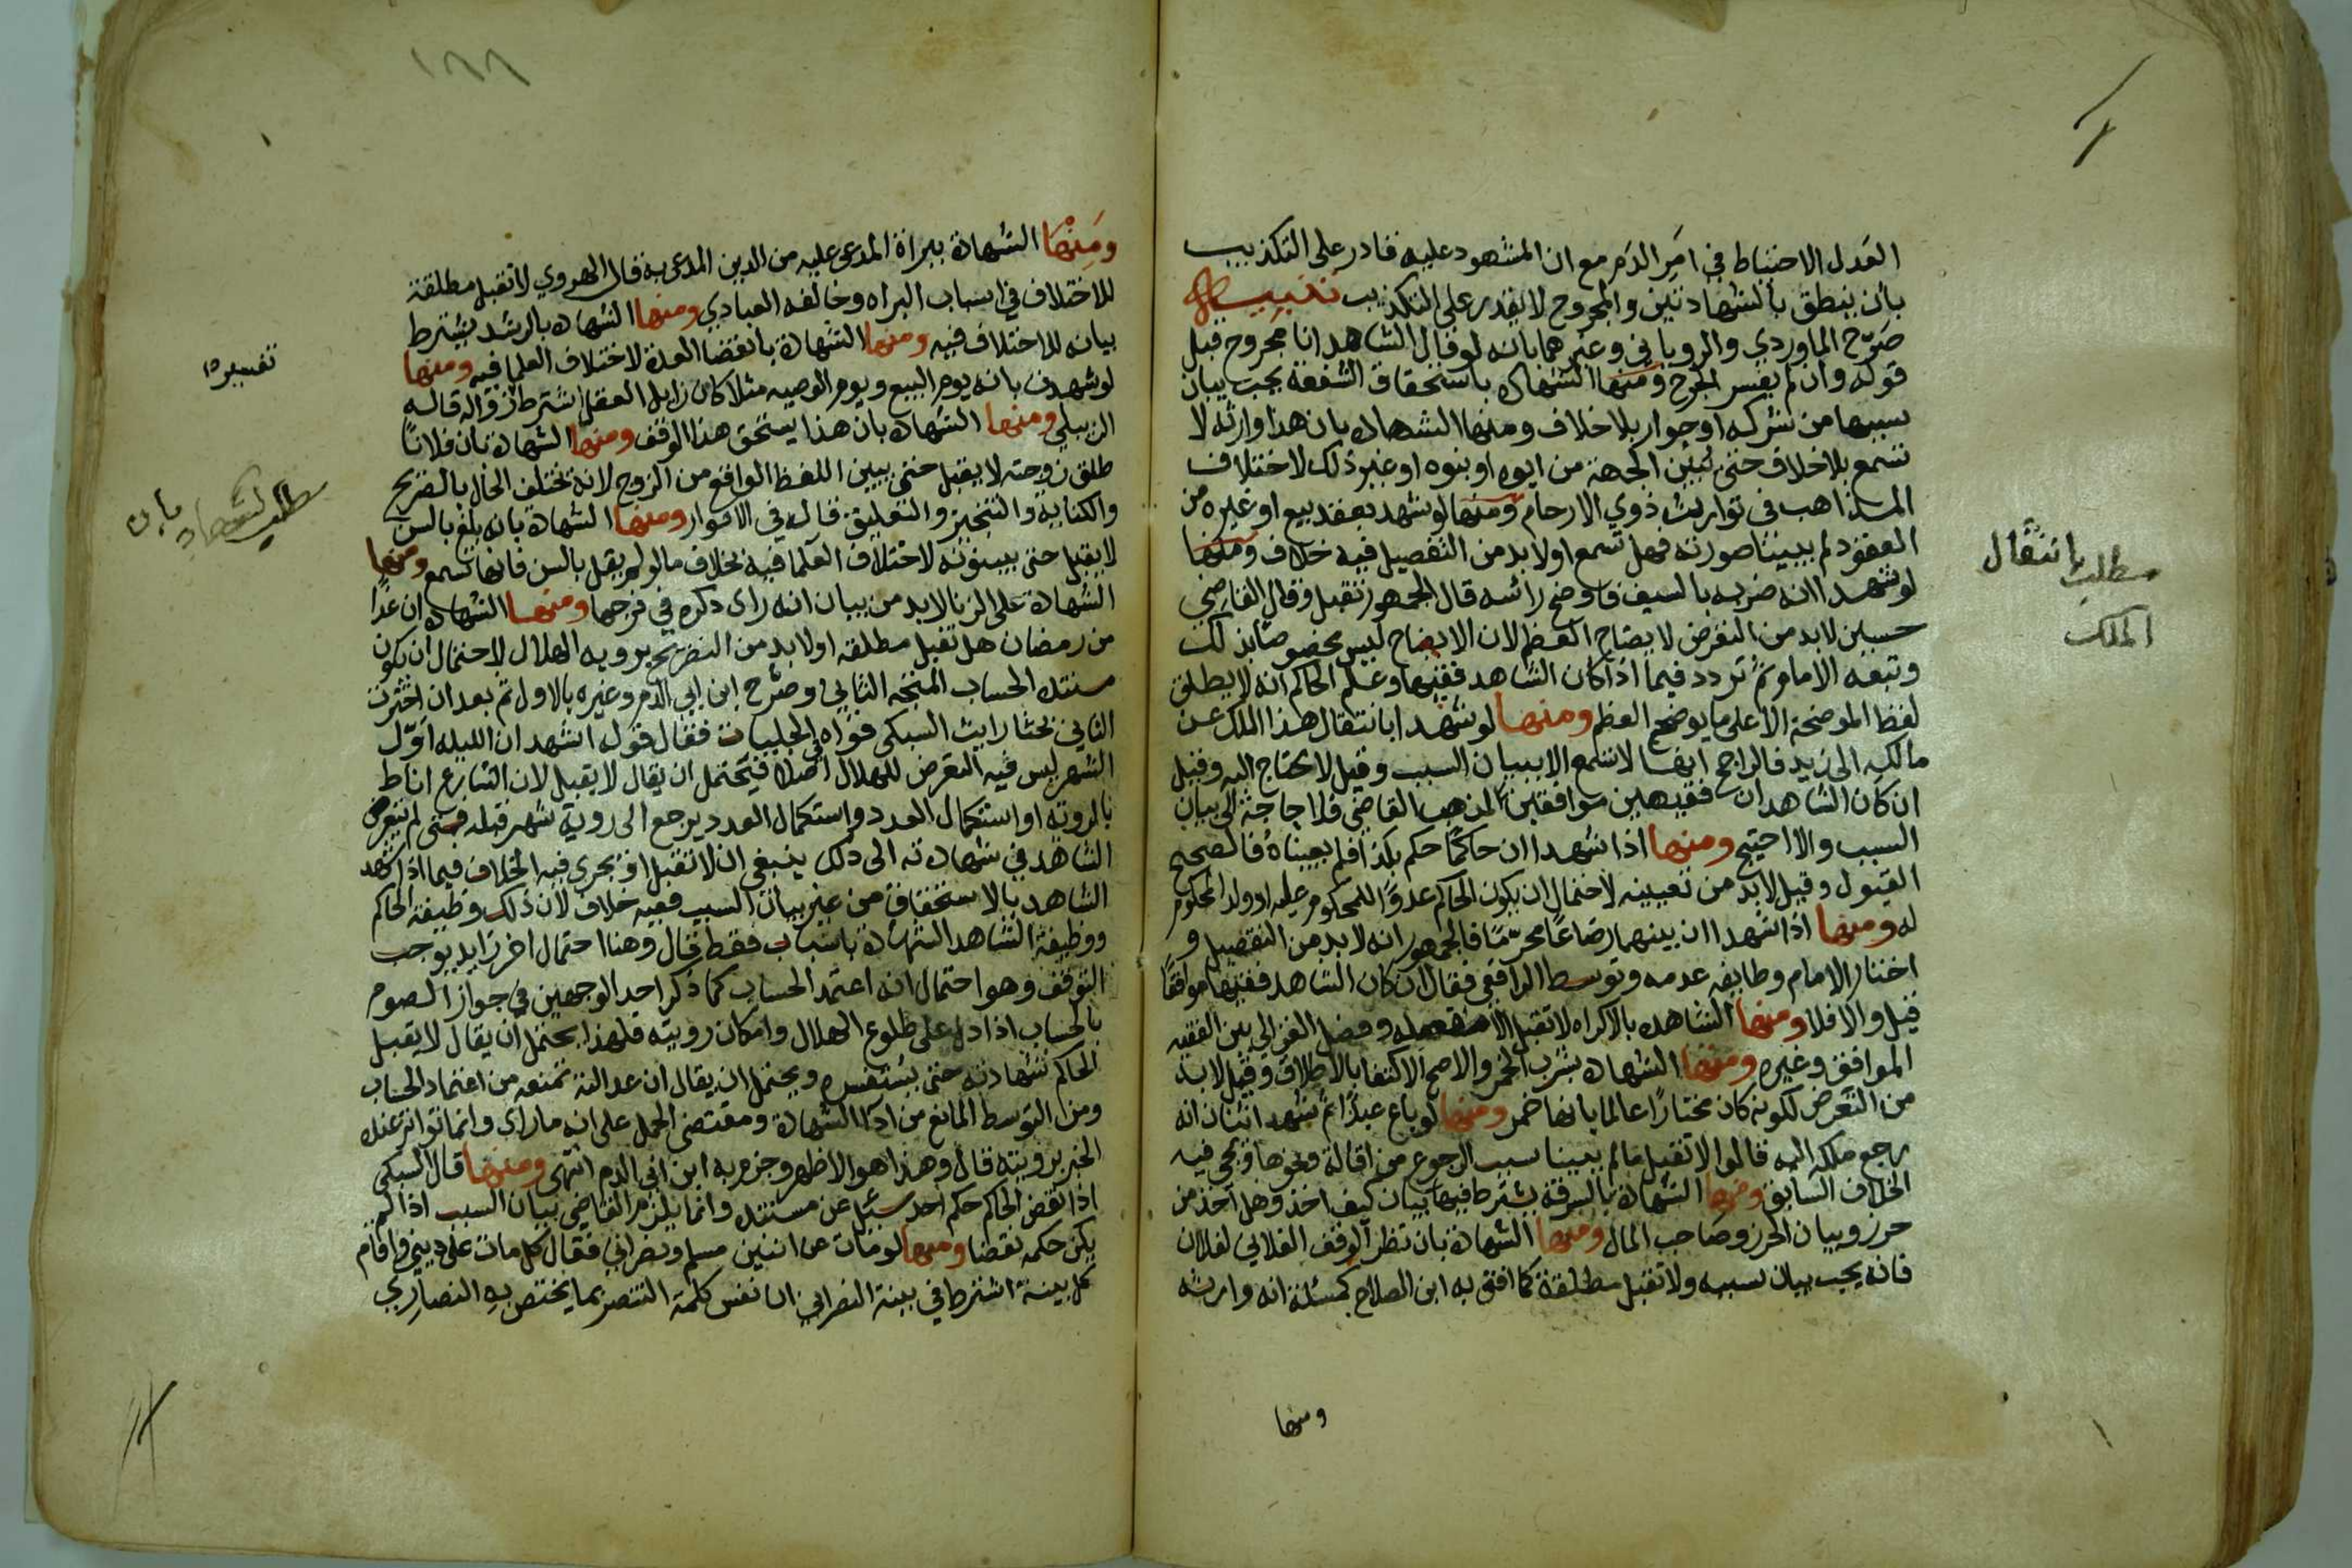 العدل الاحتياط في امر الدم مع ان المشهود عليه قادر على التكذيب
بأن ينطق بالشهادتين والمجروح لا يقدر على التكذيب تنبيه
صرّح الماوردي والروياني وغيرهما بانه لو قال الشاهد انا مجروح قبل
قوله وان لم يفسر الجرح ومنها الشهاده باستحقاق الشفعة يجب بيان
سببها من شركه او جوار بلا خلاف ومنها الشهاده بان هذا وارثه لا
تسمع بلا خلاف حتى يبين الجهة من ابوه او بنوه او غير ذلك لاختلاف
المذاهب في توارث ذوي الارحام ومنها لو شهد بعقد بيع او غيره من
العقود ولم يبينا صورته فهل تسمع او لا بد من التفصيل فيه خلاف ومنها
لو شهدا انه ضربه بالسيف فاوضح راسه قال الجمهور تقبل وقال القاضي
حسين لا بد من التعرض لايضاح العظم لان الايضاح ليس مخصوصا بذلك
وتبعه الامام ثم تردد فيما اذا كان الشاهد فقيها وعلم الحاكم انه لا يطلق
لفظ الموضحة الا على ما يوضح العظم ومنها لو شهدا بانتقال هذا الملك عن
مالكه الى زيد فالراجح انها لا تسمع الا ببيان السبب وقيل لا يحتاج اليه وقيل
ان كان الشاهدان فقيهين موافقين لمذهب القاضي فلا حاجة الى بيان
السبب والا احتيج ومنها اذا شهدا ان حاكمًا حكم بكذا فلم يعيناه فالصحيح
القبول وقيل لا بد من تعيينه لاحتمال ان يكون الحاكم عدوًا للمحكوم عليه او ولد المحكوم
له ومنها اذا شهدا ان بينهما رضاعًا محرّمًا فالجمهور انه لا بد من التفصيل و
اختار الامام وطايفه عدمه وتوسط الرافعي فقال ان كان الشاهد فقيها موافقًا
قبل والا فلا ومنها الشاهد بالاكراه لا تقبل الا مفصله وفصل الغزالي بين الفقيه
الموافق وغيره ومنها الشهاده بشرب الخمر والاصح الاكتفا بالاطلاق وقيل لا بد
من التعرض لكونه كان مختارًا عالما بانها خمر ومنها لو باع عبدًا ثم شهد اثنان انه
رجع ملكه اليه قالوا لا تقبل ما لم يبينا سبب الرجوع من اقالة ونحوها ويجي فيه
الخلاف السابق ومنها الشهادة بالسرقة يشترط فيها بيان كيف اخذ وهل اخذ من
حرز وبيان الحرز وصاحب المال ومنها الشهادة بان نظر الوقف الفلاني لفلان
فانه يجب بيان سببه ولا تقبل مطلقة كما افتى به ابن الصلاح كمسئلة انه وارثه
ومنها
مطلب بانتقال
الملك
١٨٨
ومنها الشهادة ببراة المدعى عليه من الدين المدعى به قال الهروي لا تقبل مطلقة
للاختلاف في اسباب البراه وخالفه العبادي ومنها الشهاده بالرشد يشترط
بيانه للاختلاف فيه ومنها الشهادة بانقضا العدة لاختلاف العلما فيه ومنها
لو شهدت بانه يوم البيع ويوم الوصيه مثلا كان زايل العقل اشترط زواله قاله
الزبيلي ومنها الشهاده بان هذا يستحق هذا الوقف ومنها الشهادة بان فلانًا
طلق زوجته لا يقبل حتى يبين اللفظ الواقع من الزوج لانه يختلف الحال بالصريح
والكنايه والتنجيز والتعليق قال في الانوار ومنها الشهادة بانه بلغ بالسن
لا يقبل حتى يبينونه لاختلاف العلما فيه بخلاف ما لو لم يقل بالسن فانها تسمع ومنها
الشهادة على الزنا لا بد من بيان انه راى ذكره في فرجها ومنها الشهاده ان غدًا
من رمضان هل تقبل مطلقه او لا بد من التصريح بروية الهلال لاحتمال ان يكون
مستنده الحساب المتجه الثاني وصرّح ابن ابي الدم وغيره بالاول ثم بعد ان اخترت
الثاني بحثا رايت السبكي قواه في الحلبيات فقال قول اشهد ان الليله اوّل
الشهر ليس فيه التعرض للهلال اصلا فيحتمل ان يقال لا يقبل لان الشارع اناط
بالرويه او استكمال العدد واستكمال العدد يرجع الى روية شهر قبله فمتى لم يتعرض
الشاهد في شهادته الى ذلك ينبغي ان لا تقبل او يجري فيه الخلاف فيما اذا شهد
الشاهد بالاستحقاق من غير بيان السبب ففيه خلاف لان ذلك وظيفة الحاكم
ووظيفة الشاهد الشهادة باسباب فقط قال وهنا احتمال اخر زايد يوجب
التوقف وهو احتمال انه اعتمد الحساب كما ذكر احد الوجهين في جواز الصوم
بالحساب اذا دل على طلوع الهلال وامكان رويته فلهذا يحتمل ان يقال لا يقبل
الحاكم شهادته حتى يستفسره ويحتمل ان يقال ان عدالته تمنعه من اعتماد الحساب
ومن التوسط المانع من ادا الشهادة ومقتضى الحمل على انه ما راى وانما تواتر عنده
الخبر برويته قال وهذا هو الاظهر وجزم به ابن ابي الدم انتهى ومنها قال السبكي
اذا نقض الحاكم حكم احد سئل عن مستنده وانما يلزم القاضي بيان السبب اذا لم
يكن حكمه نقضا ومنها لو مات عن اثنين مسلم ونصراني فقال كل مات على ديني واقام
كل بينة اشترط في بينة النصراني ان تفسر كلمة التنصر بما يختص به النصاري
تفسيره
مطلب الشهاده بان